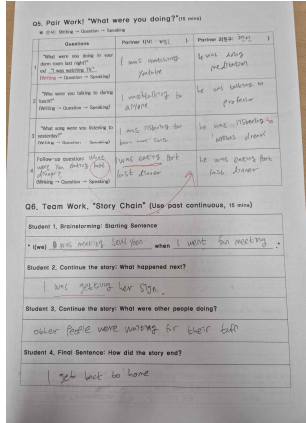 Q5, Pair Work! "What were you doing?" (15 mins)
(Writing → Question → Speaking)
Questions
Partner 1
Partner 2
1
"What were you doing in your dorm room last night?"
ex) "I was watching TV."
(Writing → Question → Speaking)
I was watching Youtube
He was doing meditation
2
"Who were you talking to during lunch?"
(Writing → Question → Speaking)
I was talking to anyone
he was talking to professor
3
"What song were you listening to yesterday?"
(Writing → Question → Speaking)
I was listening to
he was listening to
4
Follow-up question: What were you eating last dinner?
(Writing → Question → Speaking)
I was eating Pork last dinner
he was eating Pork last dinner
Q6, Team Work, "Story Chain" (Use past continuous, 15 mins)
Student 1, Brainstorming: Starting Sentence
" I(we) was meeting when I went fan meeting ."
Student 2, Continue the story: What happened next?
I was getting her sign.
Student 3, Continue the story: What were other people doing?
other people were waiting for their turn
Student 4, Final Sentence: How did the story end?
I get back to home